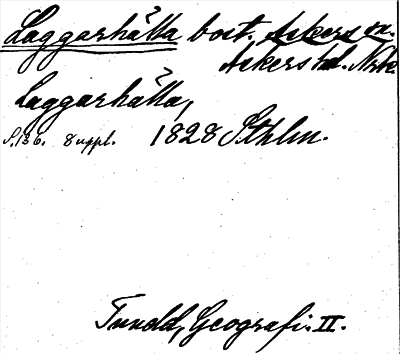 Laggarhälla bost. Askers sn.
Askers hd. Nrke.
Laggarhälla,
S. 136. 8 uppl. 1828 Sthlm.
Tuneld, Geografi. II.